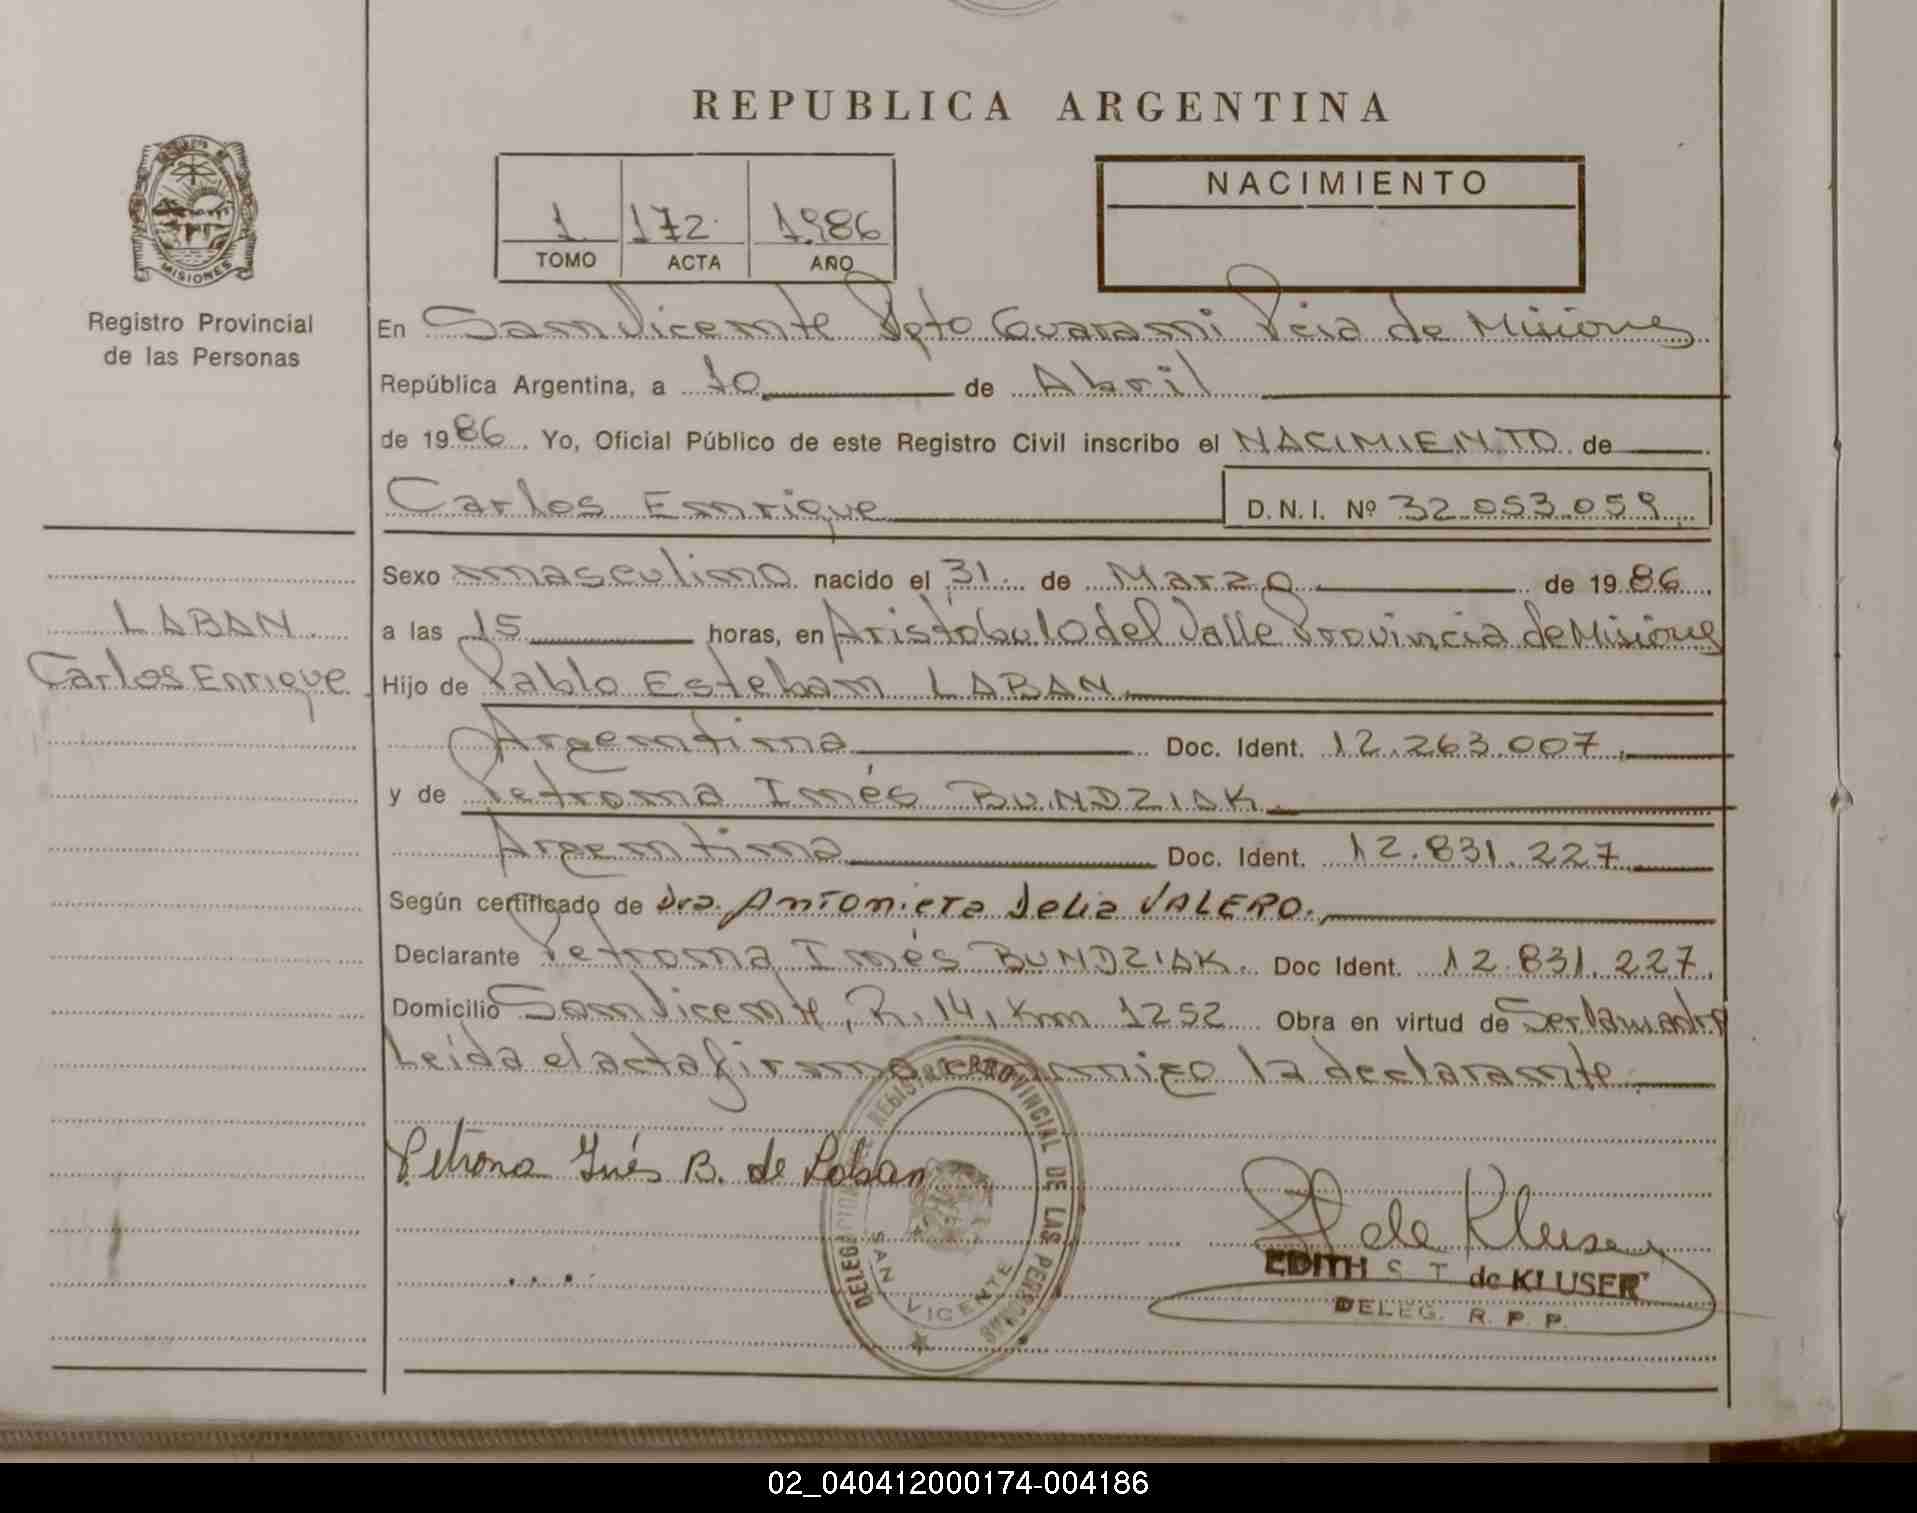 REPUBLICA ARGENTINA
1 172 1986
TOMO ACTA AÑO
NACIMIENTO
MISIONES
Registro Provincial
de las Personas
En San Vicente Dpto Guarani Pcia de Misiones
República Argentina, a 10 de Abril
de 1986. Yo, Oficial Público de este Registro Civil inscribo el NACIMIENTO de
Carlos Enrique D.N.I. Nº 32.053.059
Sexo masculino nacido el 31 de Marzo de 1986
LABAN
Carlos Enrique
a las 15 horas, en Aristóbulo del Valle Provincia de Misiones
Hijo de Pablo Esteban LABAN
Argentina Doc. Ident. 12.263.007
y de Petrona Inés BUNDZIAK
Argentina Doc. Ident. 12.831.227
Según certificado de Dra. Antonieta Delia VALERO.
Declarante Petrona Inés BUNDZIAK. Doc Ident. 12.831.227
Domicilio San Vicente, R. 14, Km 1252 Obra en virtud de Ser la madre
Leída el acta firma conmigo la declarante
Petrona Inés B. de Laban
DELEGACION DE REGISTRO PROVINCIAL DE LAS PERSONAS
SAN VICENTE
de Kluser
EDITH S. T. de KLUSER
DELEG. R. P. P.
02_040412000174-004186